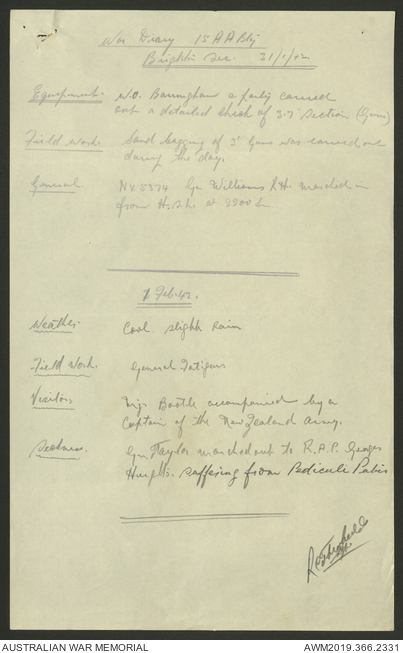 War Diary 15 AA Bty
Brighton Sec. 31/1/42
Equipment. W.O. Barringham & party carried
out a detailed check of 3.7" Section (Guns)
Field Work. Sand bagging of 3" Guns was carried out
during the day.
General NX 5374 Gnr Williams R.H. marched in
from at 2200 h.
1 Feb. 42.
Weather. Cool slight Rain
Field Work. General Fatigues
Visitors Bootle accompanied by a
Captain of the New Zealand Army.
Sickness. Gnr Taylor marched out to R.A.P. Georges
Heights. suffering from Pediculi Pubis
AUSTRALIAN WAR MEMORIAL AWM2019.366.2331